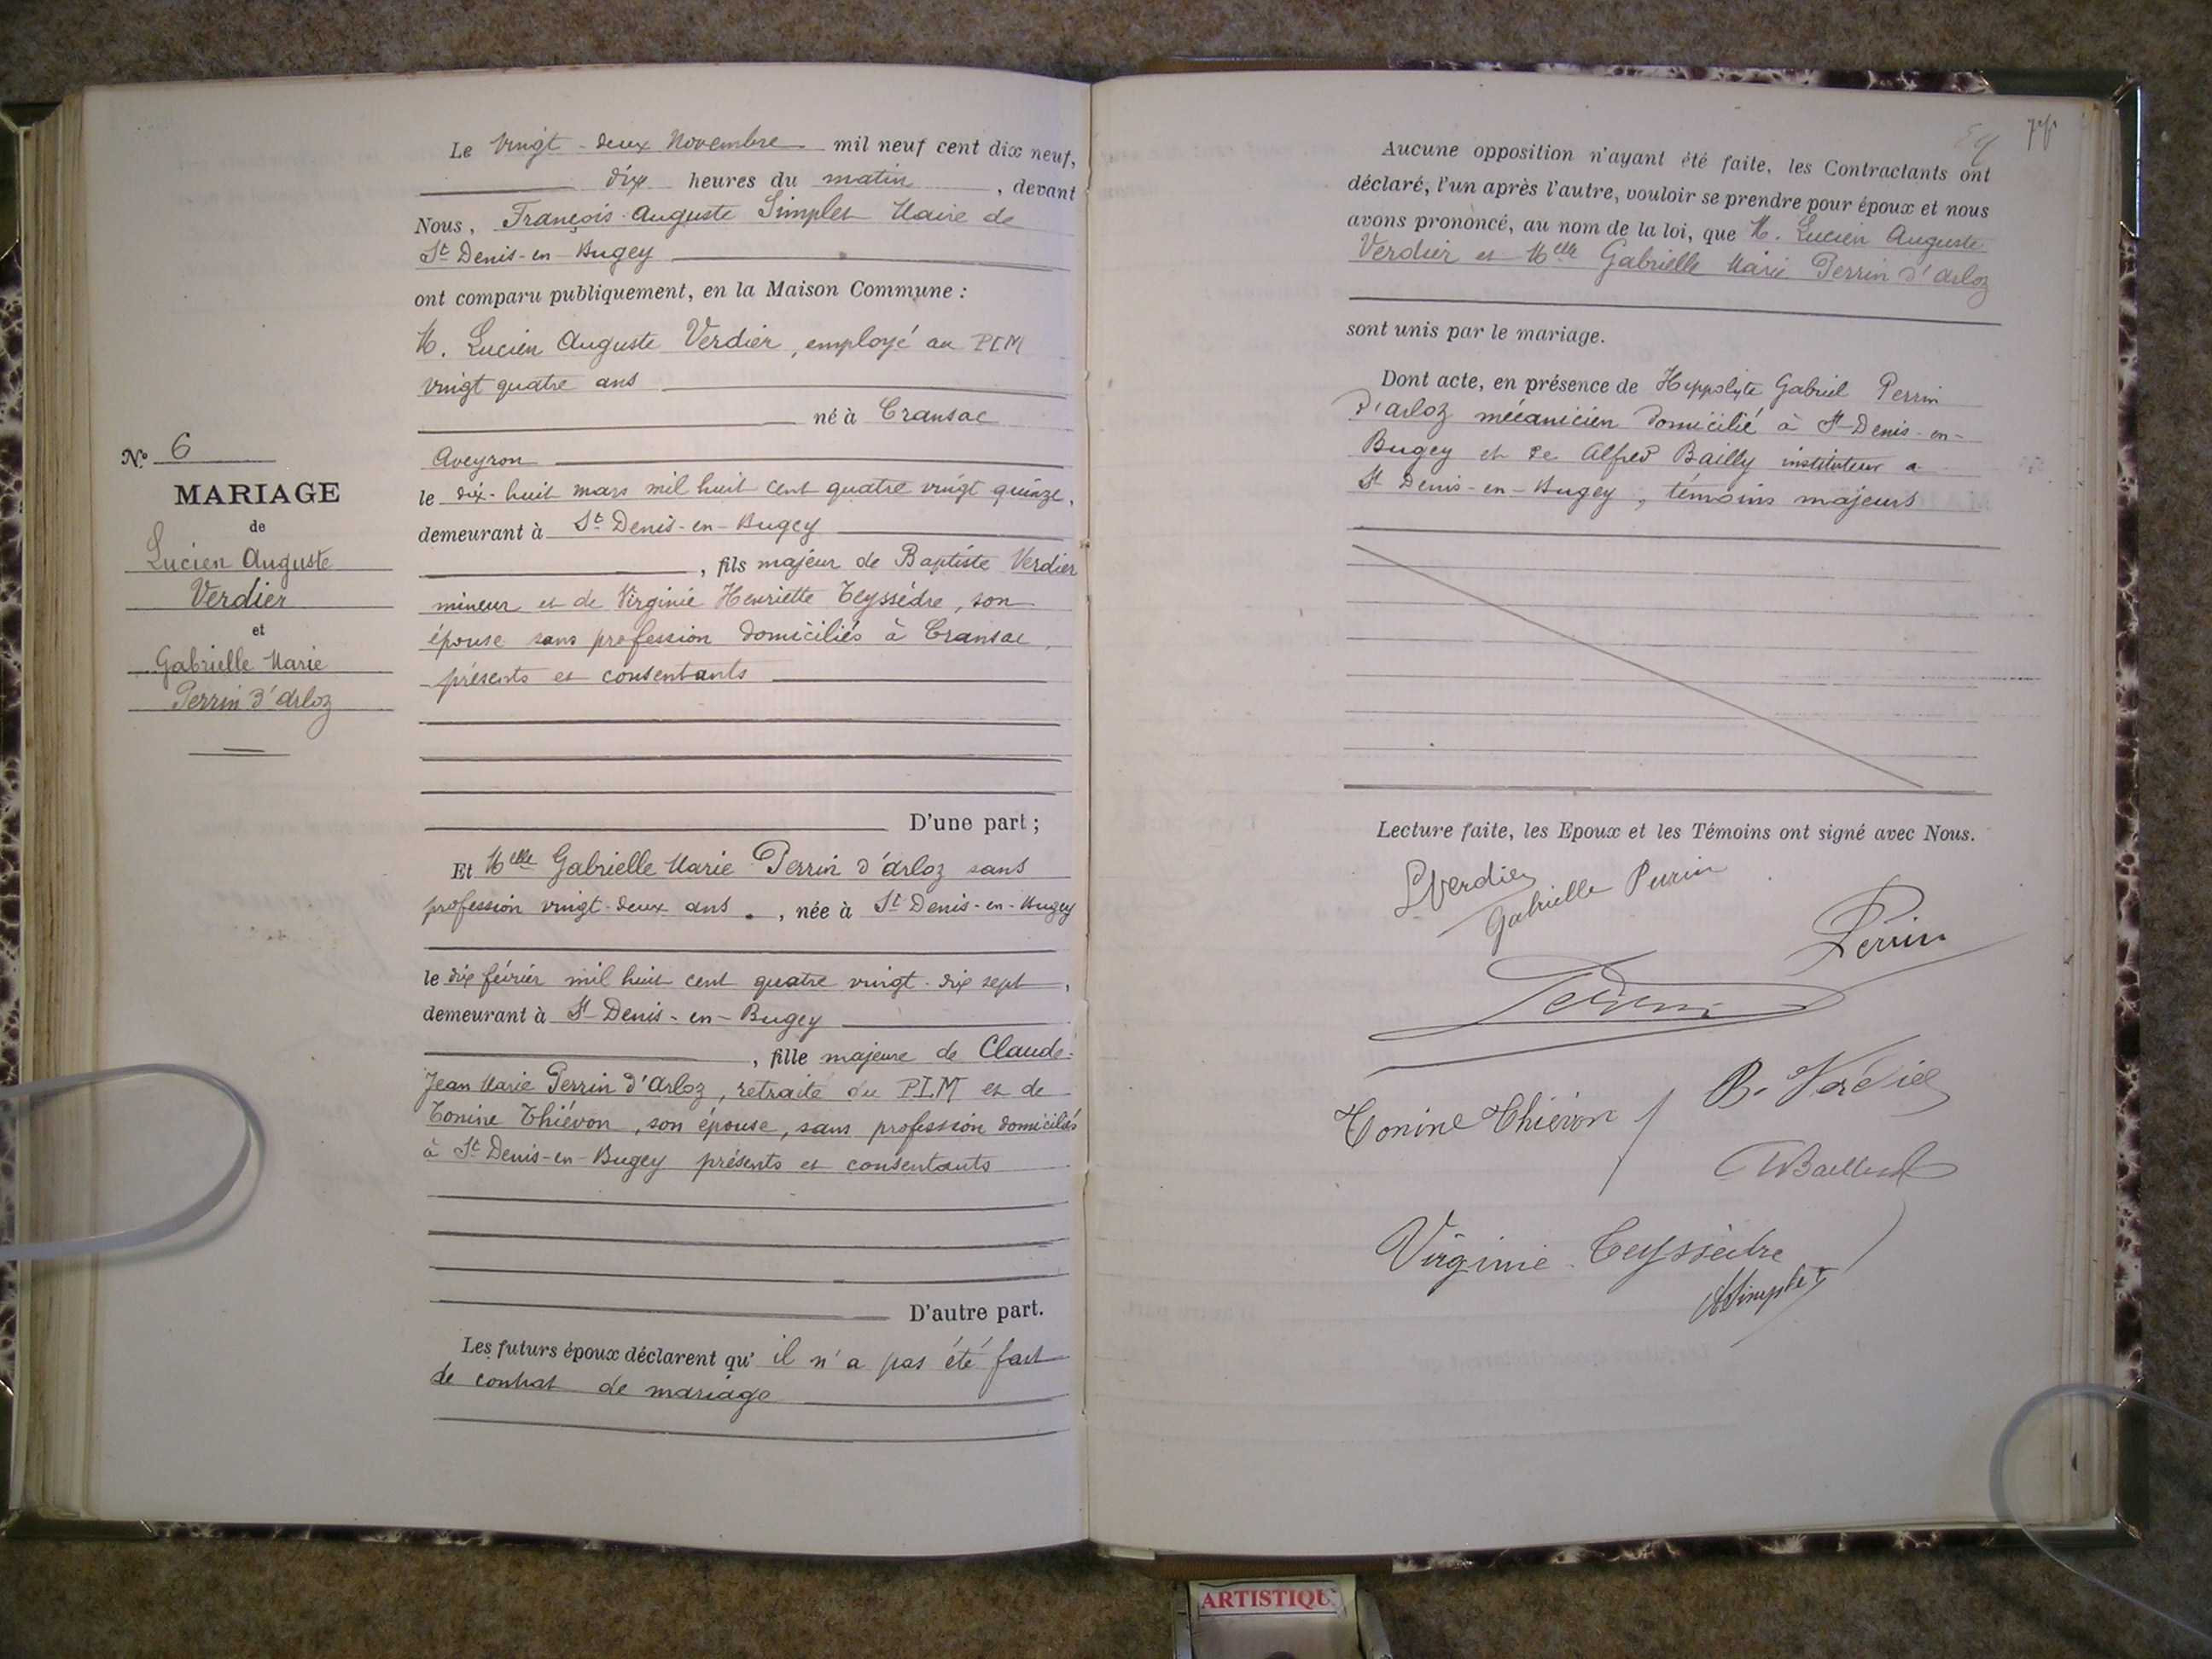 Le vingt-deux Novembre mil neuf cent dix neuf,
dix heures du matin, devant
Nous, François-Auguste Simplet Maire de
St Denis-en-Bugey
ont comparu publiquement, en la Maison Commune :
M. Lucien Auguste Verdier, employé au PLM
vingt quatre ans
né à Cransac
Aveyron
le dix-huit mars mil huit cent quatre vingt quinze,
demeurant à St Denis-en-Bugey
, fils majeur de Baptiste Verdier
mineur et de Virginie Henriette Teyssèdre, son
épouse sans profession domiciliés à Cransac,
présents et consentants
D'une part ;
Et Melle Gabrielle Marie Perrin d'Arloz sans
profession vingt-deux ans, née à St Denis-en-Bugey
le dix février mil huit cent quatre vingt-dix sept,
demeurant à St Denis-en-Bugey
, fille majeure de Claude-
Jean Marie Perrin d'Arloz, retraité du PLM et de
Tonine Thiévon, son épouse, sans profession domiciliés
à St Denis-en-Bugey présents et consentants
D'autre part.
Les futurs époux déclarent qu'il n'a pas été fait
de contrat de mariage
N° 6
MARIAGE
de
Lucien Auguste
Verdier
et
Gabrielle Marie
Perrin d'Arloz
Aucune opposition n'ayant été faite, les Contractants ont
déclaré, l'un après l'autre, vouloir se prendre pour époux et nous
avons prononcé, au nom de la loi, que M. Lucien Auguste
Verdier et Melle Gabrielle Marie Perrin d'Arloz
sont unis par le mariage.
Dont acte, en présence de Hippolyte Gabriel Perrin
d'Arloz mécanicien domicilié à St-Denis-en-
Bugey et de Alfred Bailly instituteur à
St Denis-en-Bugey, témoins majeurs
Lecture faite, les Epoux et les Témoins ont signé avec Nous.
L Verdier
Gabrielle Perrin
Perrin
Perrin
Tonine Thiévon
B. Verdier
Virginie Teyssèdre
ASimplet
ARTISTIQU